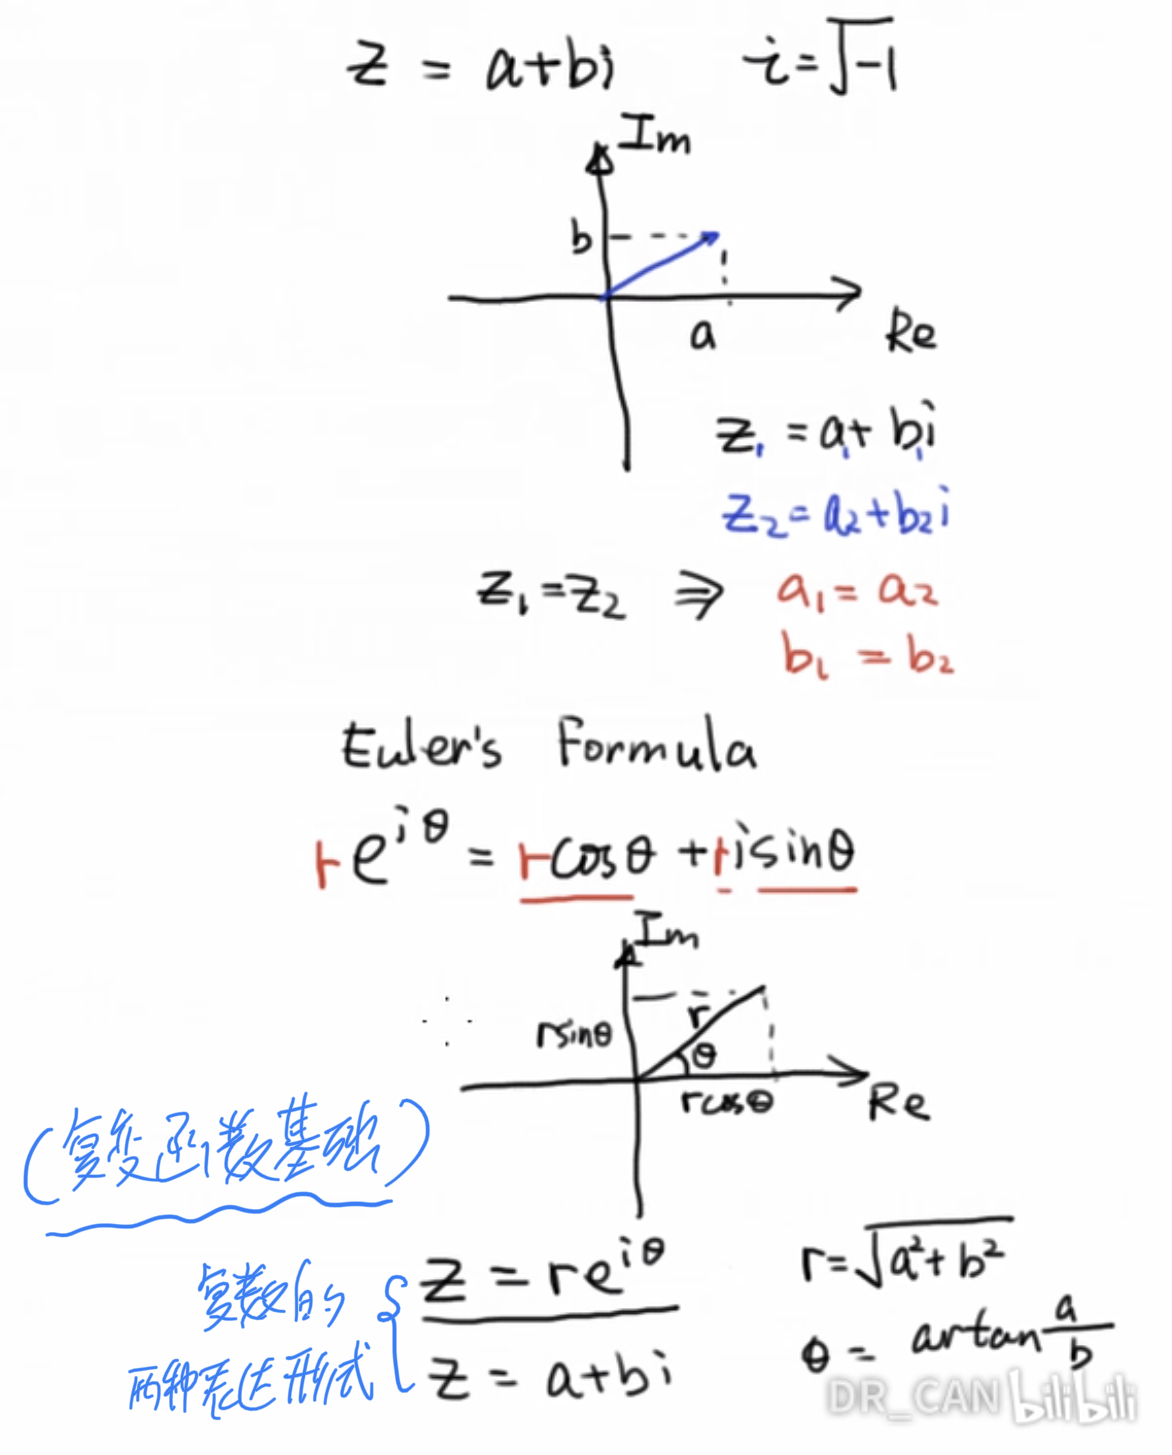 z = a+bi i=√-1
Im
b
a
Re
z₁ = a₁+b₁i
z₂=a₂+b₂i
z₁=z₂ ⇒ a₁= a₂
b₁ = b₂
Euler's Formula
re^{iθ} = rcosθ +risinθ
Im
r
rsinθ
θ
rcosθ
Re
(复变函数基础)
复数的
两种表达形式
z = re^{iθ}
z = a+bi
r=√a²+b²
θ = artan a/b
DR_CAN bilibili